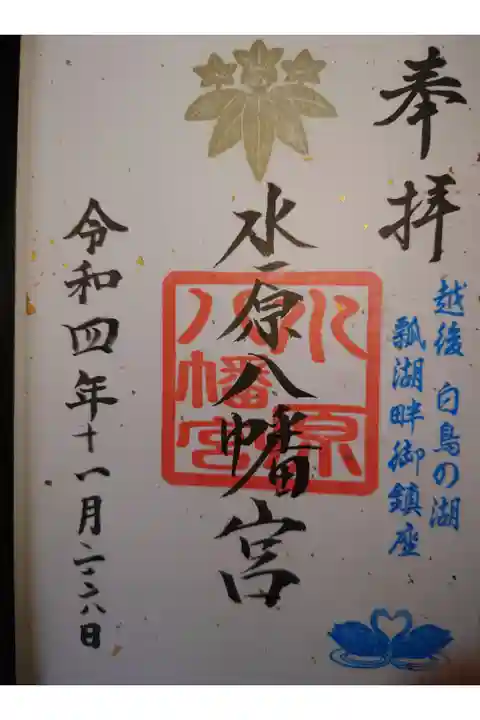 奉拝
越後 白鳥の湖
瓢湖畔御鎮座
水原八幡宮
水原
八幡宮
令和四年十一月二十八日